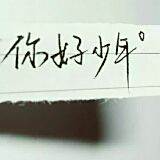 你好少年。